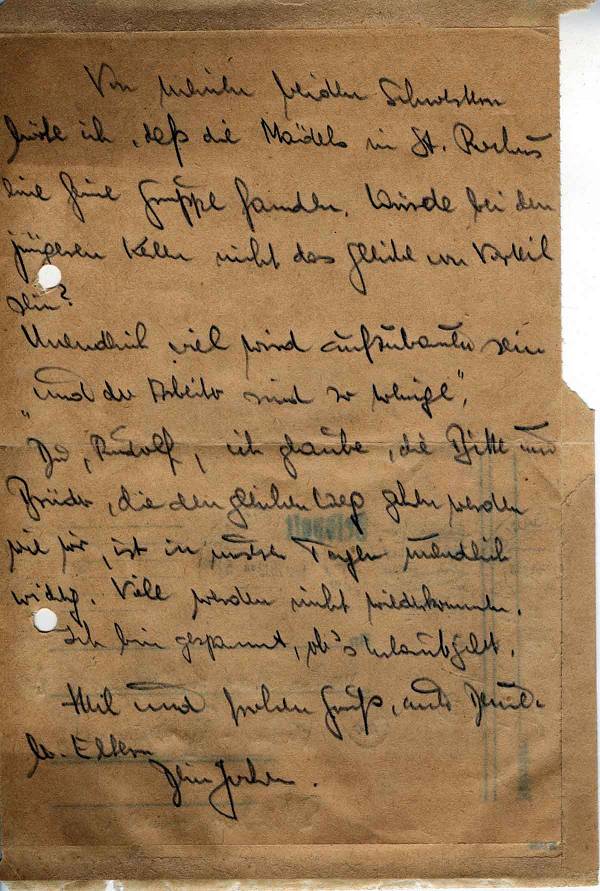 Von meinen beiden Schwestern
hörte ich, daß die Mädels in St. Rochus
eine feine Gruppe fanden. Würde bei den
jüngeren Kerlen nicht das gleiche von Vorteil
sein?
Unendlich viel wird aufzubauen sein
"und der Arbeiter sind so wenige".
Du, Rudolf, ich glaube, die Bitte um
Brüder, die den gleichen Weg gehen werden
wie wir, ist in unseren Tagen unendlich
wichtig. Viele werden nicht wiederkommen.
Ich bin gespannt, ob's Urlaub gibt.
Heil und frohen Gruß, auch Deinen
lb. Eltern
Dein Jochen.